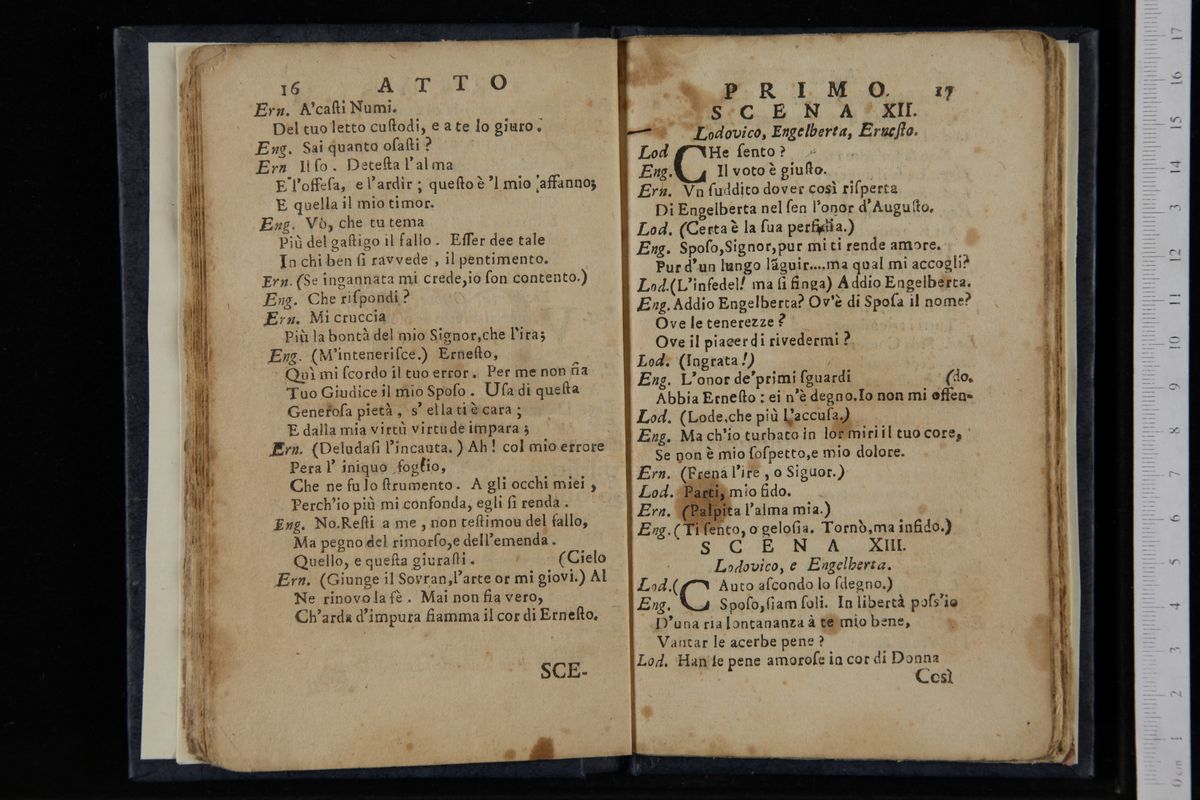 16 ATTO
Ern. A'casti Numi.
Del tuo letto custodi, e a te lo giuro.
Eng. Sai quanto osasti?
Ern Il so. Detesta l'alma
E l'offesa, e l'ardir; questo è 'l mio affanno;
E quella il mio timor.
Eng. Vò, che tu tema
Più del gastigo il fallo. Esser dee tale
In chi ben si ravvede, il pentimento.
Ern. (Se ingannata mi crede, io son contento.)
Eng. Che rispondi?
Ern. Mi cruccia
Più la bontà del mio Signor, che l'ira;
Eng. (M'intenerisce.) Ernesto,
Quì mi scordo il tuo error. Per me non fia
Tuo Giudice il mio Sposo. Usa di questa
Generosa pietà, s' ella ti è cara;
E dalla mia virtù virtude impara;
Ern. (Deludasi l'incauta.) Ah! col mio errore
Pera l' iniquo foglio,
Che ne fu lo strumento. A gli occhi miei,
Perch'io più mi confonda, egli si renda.
Eng. No. Resti a me, non testimon del fallo,
Ma pegno del rimorso, e dell'emenda.
Quello, e questa giurasti. (Cielo
Ern. (Giunge il Sovran, l'arte or mi giovi.) Al
Ne rinovo la fè. Mai non fia vero,
Ch'arda d'impura fiamma il cor di Ernesto.
SCE-
PRIMO. 17
SCENA XII.
Lodovico, Engelberta, Ernesto.
Lod CHe sento?
Eng. Il voto è giusto.
Ern. Vn suddito dover così rispetta
Di Engelberta nel sen l'onor d'Augusto.
Lod. (Certa è la sua perfidia.)
Eng. Sposo, Signor, pur mi ti rende amore.
Pur d'un lungo lãguir....ma qual mi accogli?
Lod. (L'infedel! ma si finga) Addio Engelberta.
Eng. Addio Engelberta? Ov'è di Sposa il nome?
Ove le tenerezze?
Ove il piacer di rivedermi?
Lod. (Ingrata!)
Eng. L'onor de'primi sguardi (do.
Abbia Ernesto: ei n'è degno. Io non mi offen-
Lod. (Lode, che più l'accusa.)
Eng. Ma ch'io turbato in lor miri il tuo core,
Se non è mio sospetto, e mio dolore.
Ern. (Frena l'ire, o Siguor.)
Lod. Parti, mio fido.
Ern. (Palpita l'alma mia.)
Eng. (Ti sento, o gelosia. Tornò, ma infido.)
SCENA XIII.
Lodovico, e Engelberta.
Lod. (CAuto ascondo lo sdegno.)
Eng. Sposo, siam soli. In libertà poss'io
D'una ria lontananza à te mio bene,
Vantar le acerbe pene?
Lod. Han le pene amorose in cor di Donna
Così